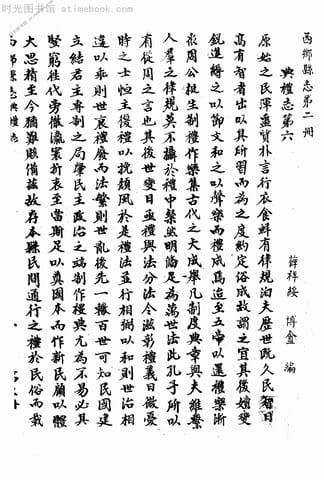 时光图书馆 atimebook.com
西鄉縣志第二冊
典禮志第六
薛祥綏 博盦 編
原始之民渾噩質朴言行衣食尠有律規洎夫歷世既久民智日
高有智者出以其所習而為之度約定俗成故謂之宜其後嬗變
銳進縛之以節文和之以聲樂而禮成焉迄至五帝以還禮樂漸
於周公誕生制禮作樂集古代之大成舉凡制度典章與夫維繫
人羣之律規莫不攝於禮中粲然明備足為萬世法此孔子所以
有從周之言也其後世變日亟禮與法分法令滋彰禮義日微憂
時之士恒主復禮以挽頹風於是禮法並行相輔以和則世治相
違以乖則世衰禮廢而法繁則世亂後先一轍百世可知民國建
立結君主專制之局肇民主政治之端制作禮典尤為不易必具
堅窮往代旁徵瀛寰折衷至當斯足以奠國本而作新民願以體
大思精至今猶難賅備茲故存本縣民間通行之禮於民俗而載
西鄉縣志典禮志